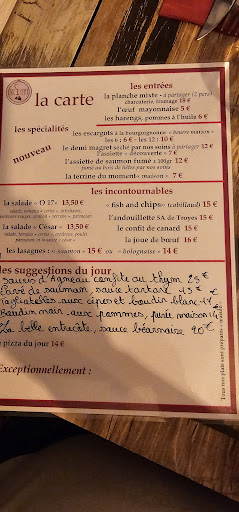 la carte
les entrées
la planche mixte - à partager (2 pers)
charcuterie, fromage 18 €
l'œuf mayonnaise 5 €
les harengs, pommes à l'huile 6 €
les spécialités
nouveau
les escargots à la bourguignonne « beurre maison »
les 6 : 6 € - les 12 : 10 €
le demi magret séché par nos soins à partager 12 €
l'assiette « découverte » 7 €
l'assiette de saumon fumé 100gr 12 €
fumé au bois de hêtre par nos soins
la terrine du moment « maison » 7 €
les incontournables
la salade « O 17 » 13,50 €
la salade « César » 13,50 €
les lasagnes : « saumon » 15 € ou « bolognaise » 14 €
« fish and chips » (cabillaud) 15 €
l'andouillette 5A de Troyes 15 €
le confit de canard 15 €
la joue de bœuf 16 €
les suggestions du jour
Souris d'Agneau confite au thym 25 €
Pavé de saumon, sauce tartare 15 €
Tagliatelles aux cèpes et boudin blanc
Boudin noir aux pommes, purée maison 14
La belle entrecôte, sauce béarnaise 20 €
pizza du jour 14 €
Exceptionnellement :
Tous nos plats sont préparés « maison »